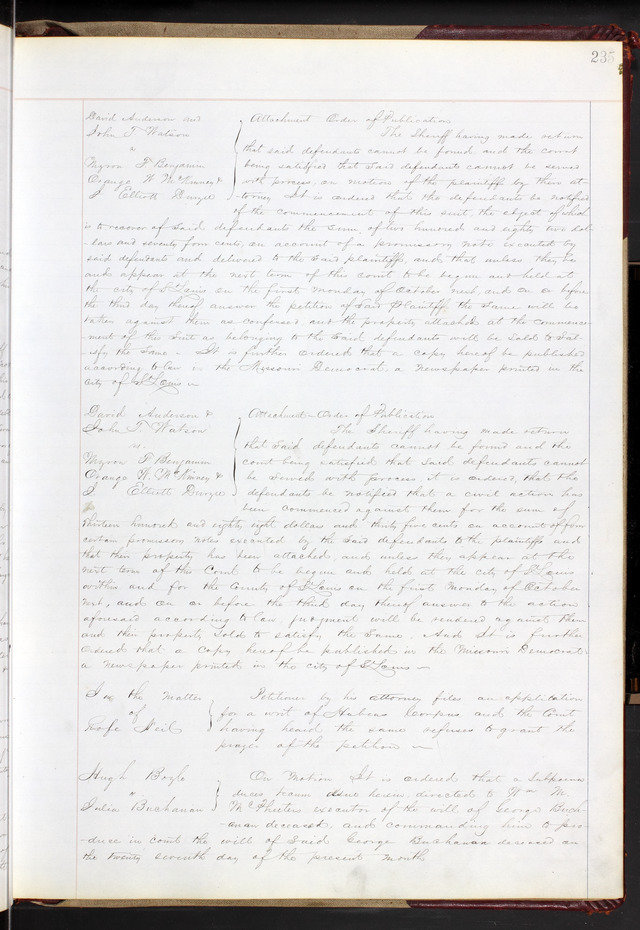 235
David Anderson and } Attachment Order of Publication
John T Watson The Sheriff having made return
v that said defendants cannot be found and the court
Myron P Benjamin being satisfied that said defendants cannot be served
Orange W McKinney & with process, on motion of the plaintiffs by their at-
J Elliott torney It is ordered that the defendants be notified
of the commencement of this suit, the object of which
is to recover of said defendants the sum, of two hundred and eighty two dol-
-lars and seventy four cents, on account of a promissory note executed by
said defendants and delivered to the said plaintiffs, and that unless they be
and appear at the next term of this court to be begun and held at
the city of St Louis on the first Monday of October next, and on or before
the third day thereof answer the petition of said Plaintiffs the same will be
taken against them as confessed and the property attached at the commence-
-ment of this suit as belonging to the said defendants will be sold to sat-
-isfy the same - It is further ordered that a copy hereof be published
according to law in the Missouri Democrat a newspaper printed in the
city of St Louis
David Anderson & } Attachment - Order of Publication
John T Watson The Sheriff having made return
vs. that said defendants cannot be found and the
Myron P Benjamin court being satisfied that said defendants cannot
Orange W. McKinney & be served with process it is ordered, that the
J Elliott defendants be notified that a civil action has
been commenced against them for the sum of
thirteen hundred and eighty eight dollars and thirty five cents on account of four
certain promissory notes executed by the said defendants to the plaintiffs and
that their property has been attached, and unless they appear at the
next term of this Court to be begun and held at the city of St Louis
within and for the County of St Louis on the first Monday of October
next, and on or before the third day thereof answer to the action
aforesaid according to law, judgment will be rendered against them
and their property sold to satisfy the same. And It is further
ordered that a copy hereof be published in the Missouri Democrat
a newspaper printed in the city of St Louis
In the Matter } Petitioner by his attorney files an application
of for a writ of Habeas Corpus and the Court
Neil having heard the same refuses to grant the
prayer of the petition
Hugh Boyle } On Motion It is ordered that a Subpoena
v duces tecum issue herein, directed to Wm M.
Julia Buchanan McPheeters executor of the will of George Buch-
-anan deceased, and commanding him to pro-
-duce in court the will of said George Buchanan deceased on
the twenty seventh day of the present month